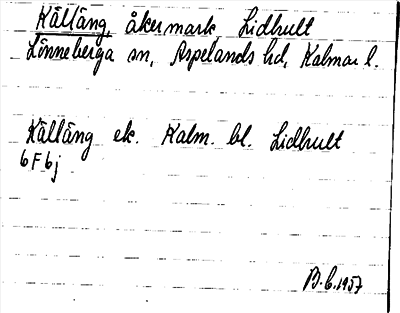 Källäng, åkermark, Lidhult
Lönneberga sn, Aspelands hd, Kalmar l.
Källäng ek. Kalm. bl. Lidhult
6F6j
B.C. 1957